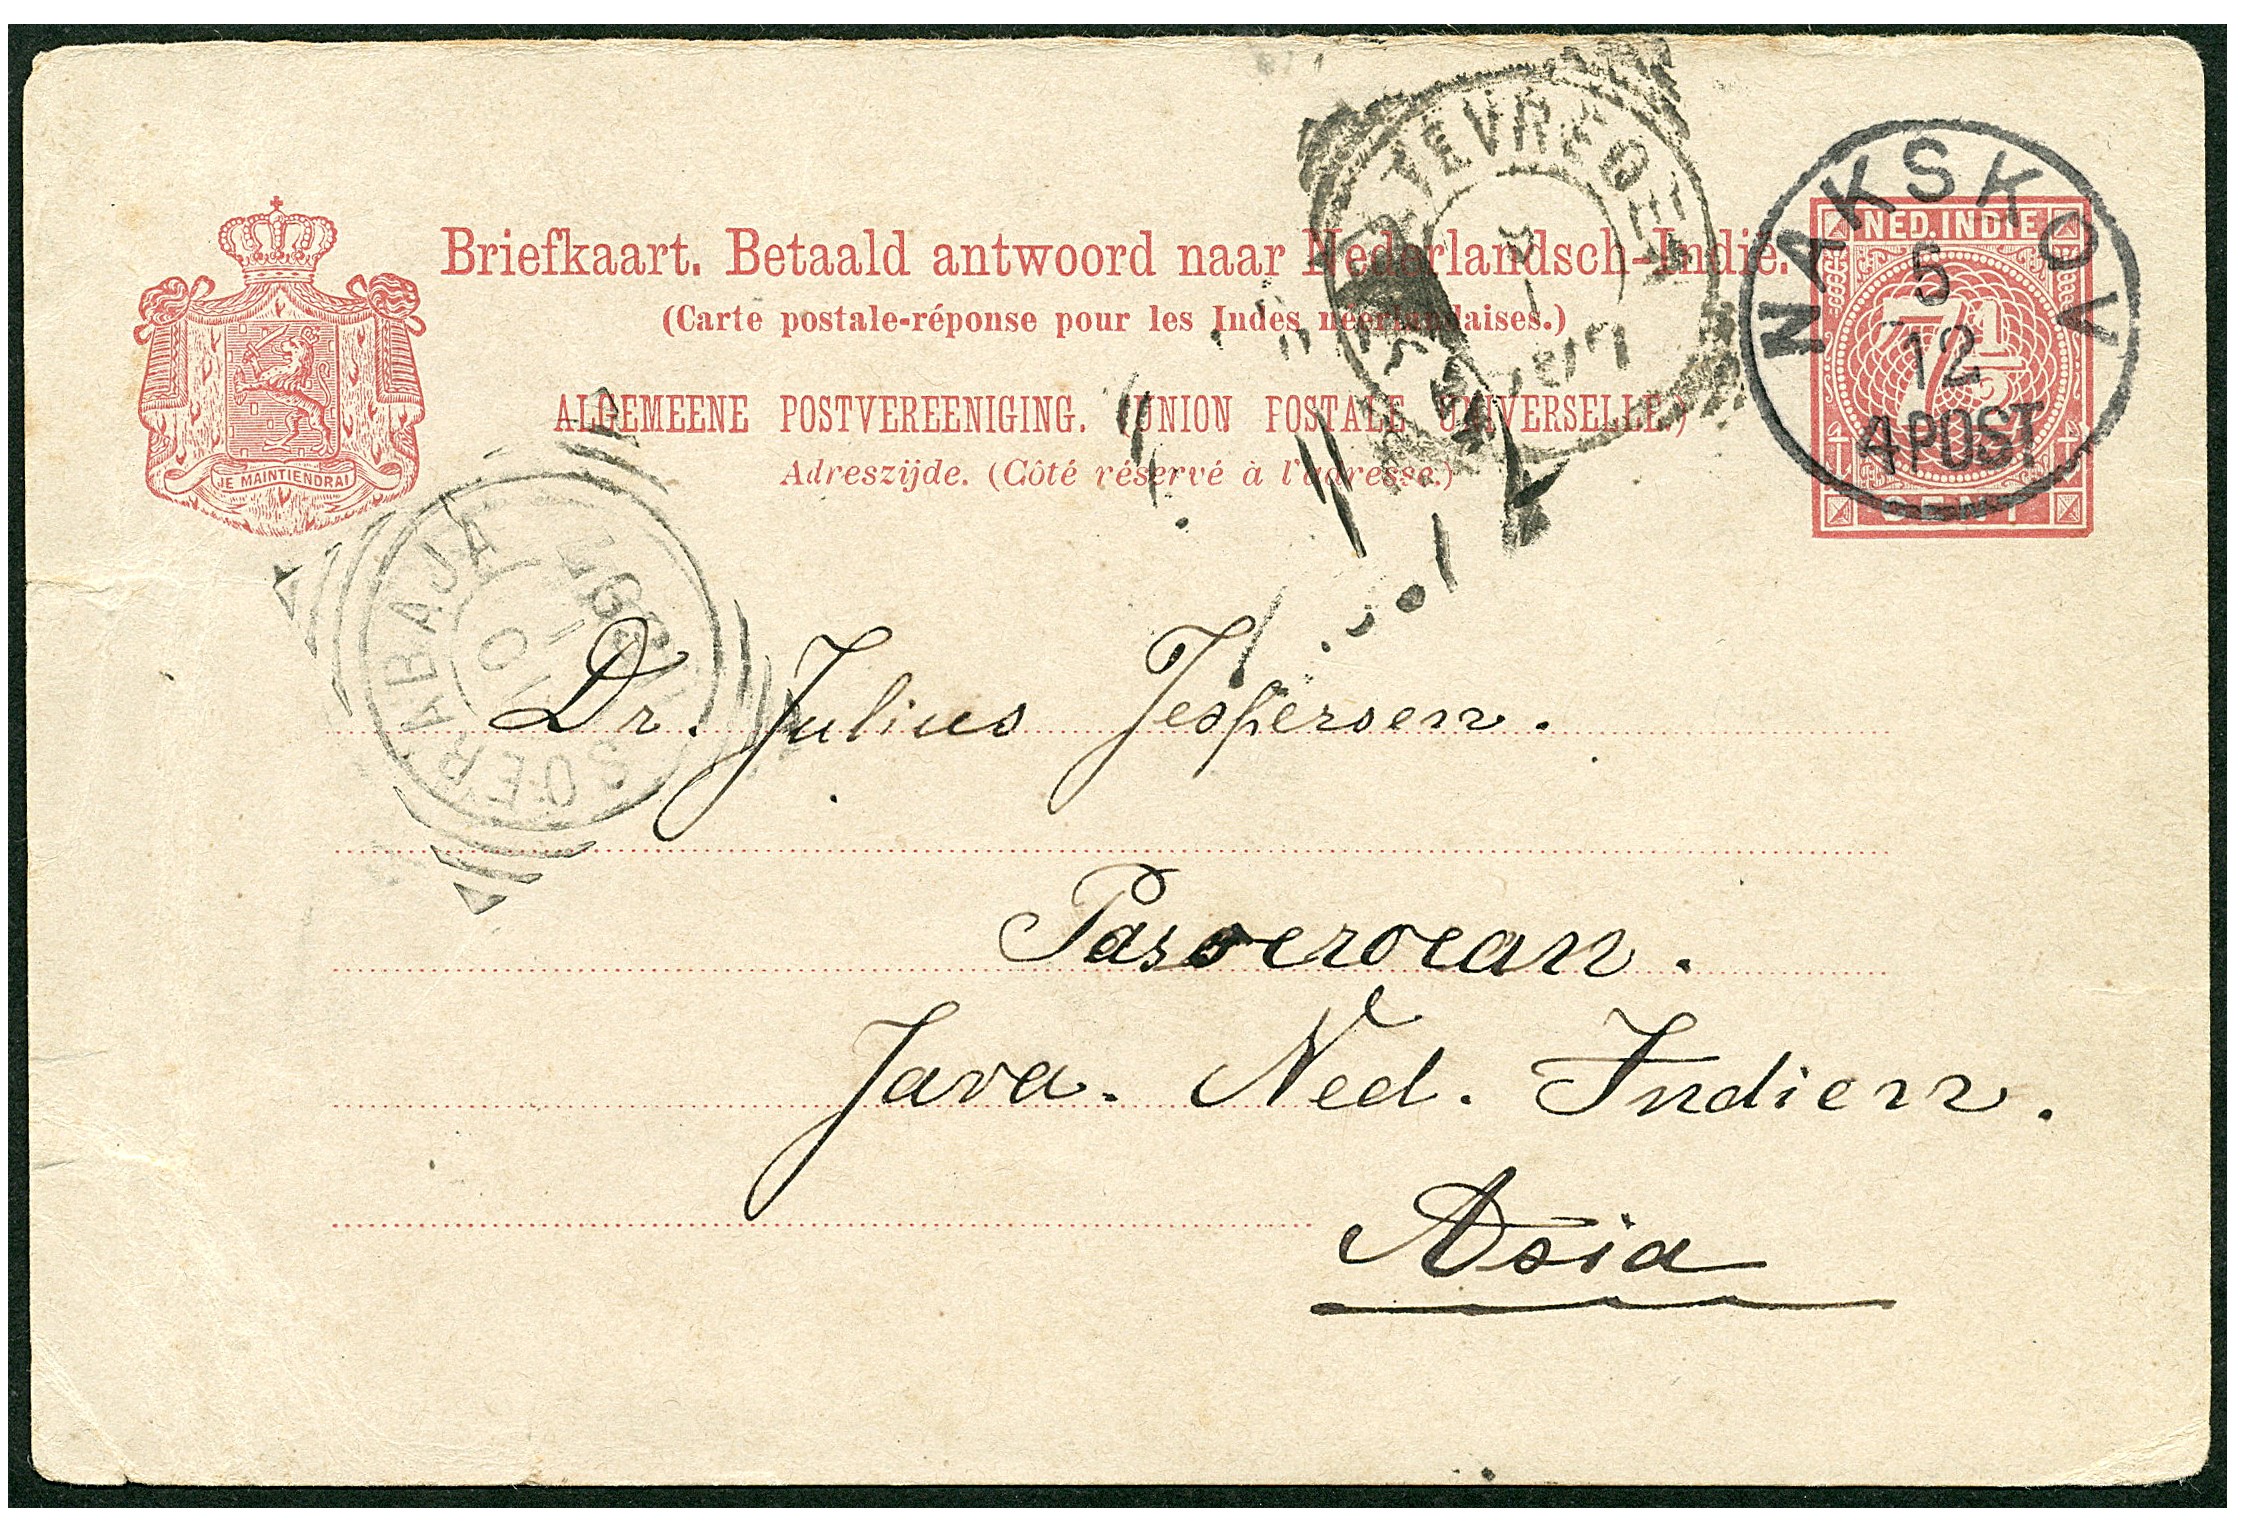 Briefkaart. Betaald antwoord naar Nederlandsch-Indië.
(Carte postale-réponse pour les Indes néerlandaises.)
ALGEMEENE POSTVEREENIGING. (UNION POSTALE UNIVERSELLE.)
Adreszijde. (Côté réservé à l'adresse.)
JE MAINTIENDRAI
NED. INDIE
7 1/2
CENT
NAKSKOV
5
12
4 POST
SOERABAJA
10
1
Dr. Julius Jespersen.
Pasoeroean.
Java. Ned. Indien.
Asia